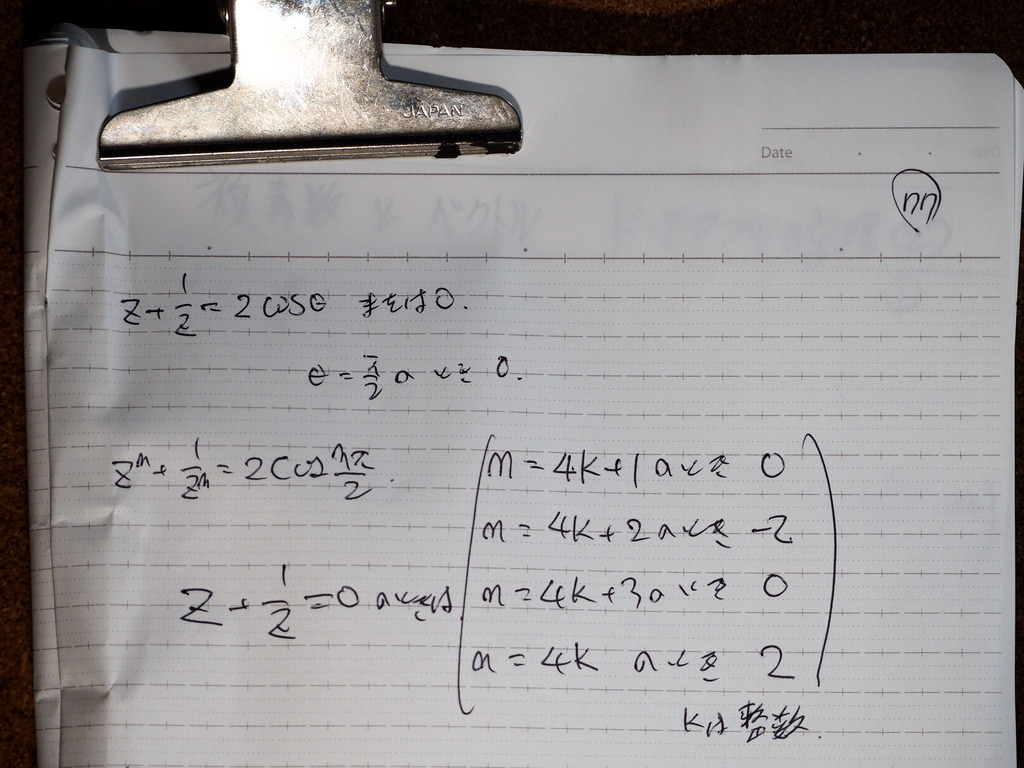 JAPAN
Date
z + 1/z = 2 cosθ または 0.
θ = π/2 のとき 0.
zⁿ + 1/zⁿ = 2 cos nπ/2.
n = 4k+1 のとき 0
n = 4k+2 のとき -2
z + 1/z = 0 のときは
n = 4k+3 のとき 0
n = 4k のとき 2
kは整数.